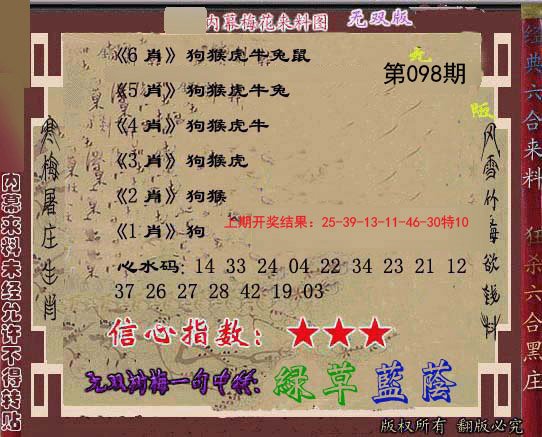 内幕梅花来料图 无双版
无
第098期
版
《6 肖》狗猴虎牛兔鼠
《5 肖》狗猴虎牛兔
《4 肖》狗猴虎牛
《3 肖》狗猴虎
《2 肖》狗猴
上期开奖结果：25-39-13-11-46-30特10
《1 肖》狗
心水码: 14 33 24 04 22 34 23 21 12
37 26 27 28 42 19 03
信心指数: ★★★
无双测梅一句中特: 綠草藍蔭
寒梅屠庄生肖
风雪竹海欲钱料
内幕来料未经允许不得转贴
经典六合来料 狂杀六合黑庄
版权所有 翻版必究